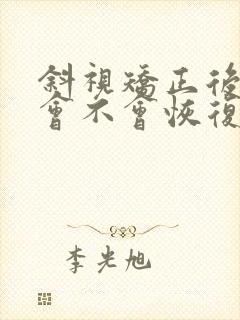 斜視矯正後
會不會恢復
李光旭